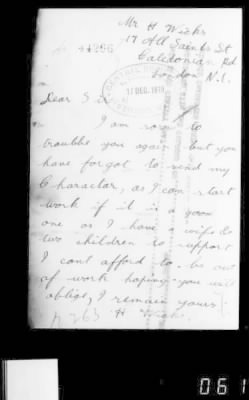 Mr H Wicks
17 All Saints St
Caledonian Rd
London N.1.
17 DEC. 1919
Dear Sir
I am sorry to
trouble you again but you
have forgot to send my
Charactar, as I can start
work if it is a good
one as I have a wife &
two children to support
I cant afford to be out
of work hoping you will
oblige, I remain yours
H Wicks
061